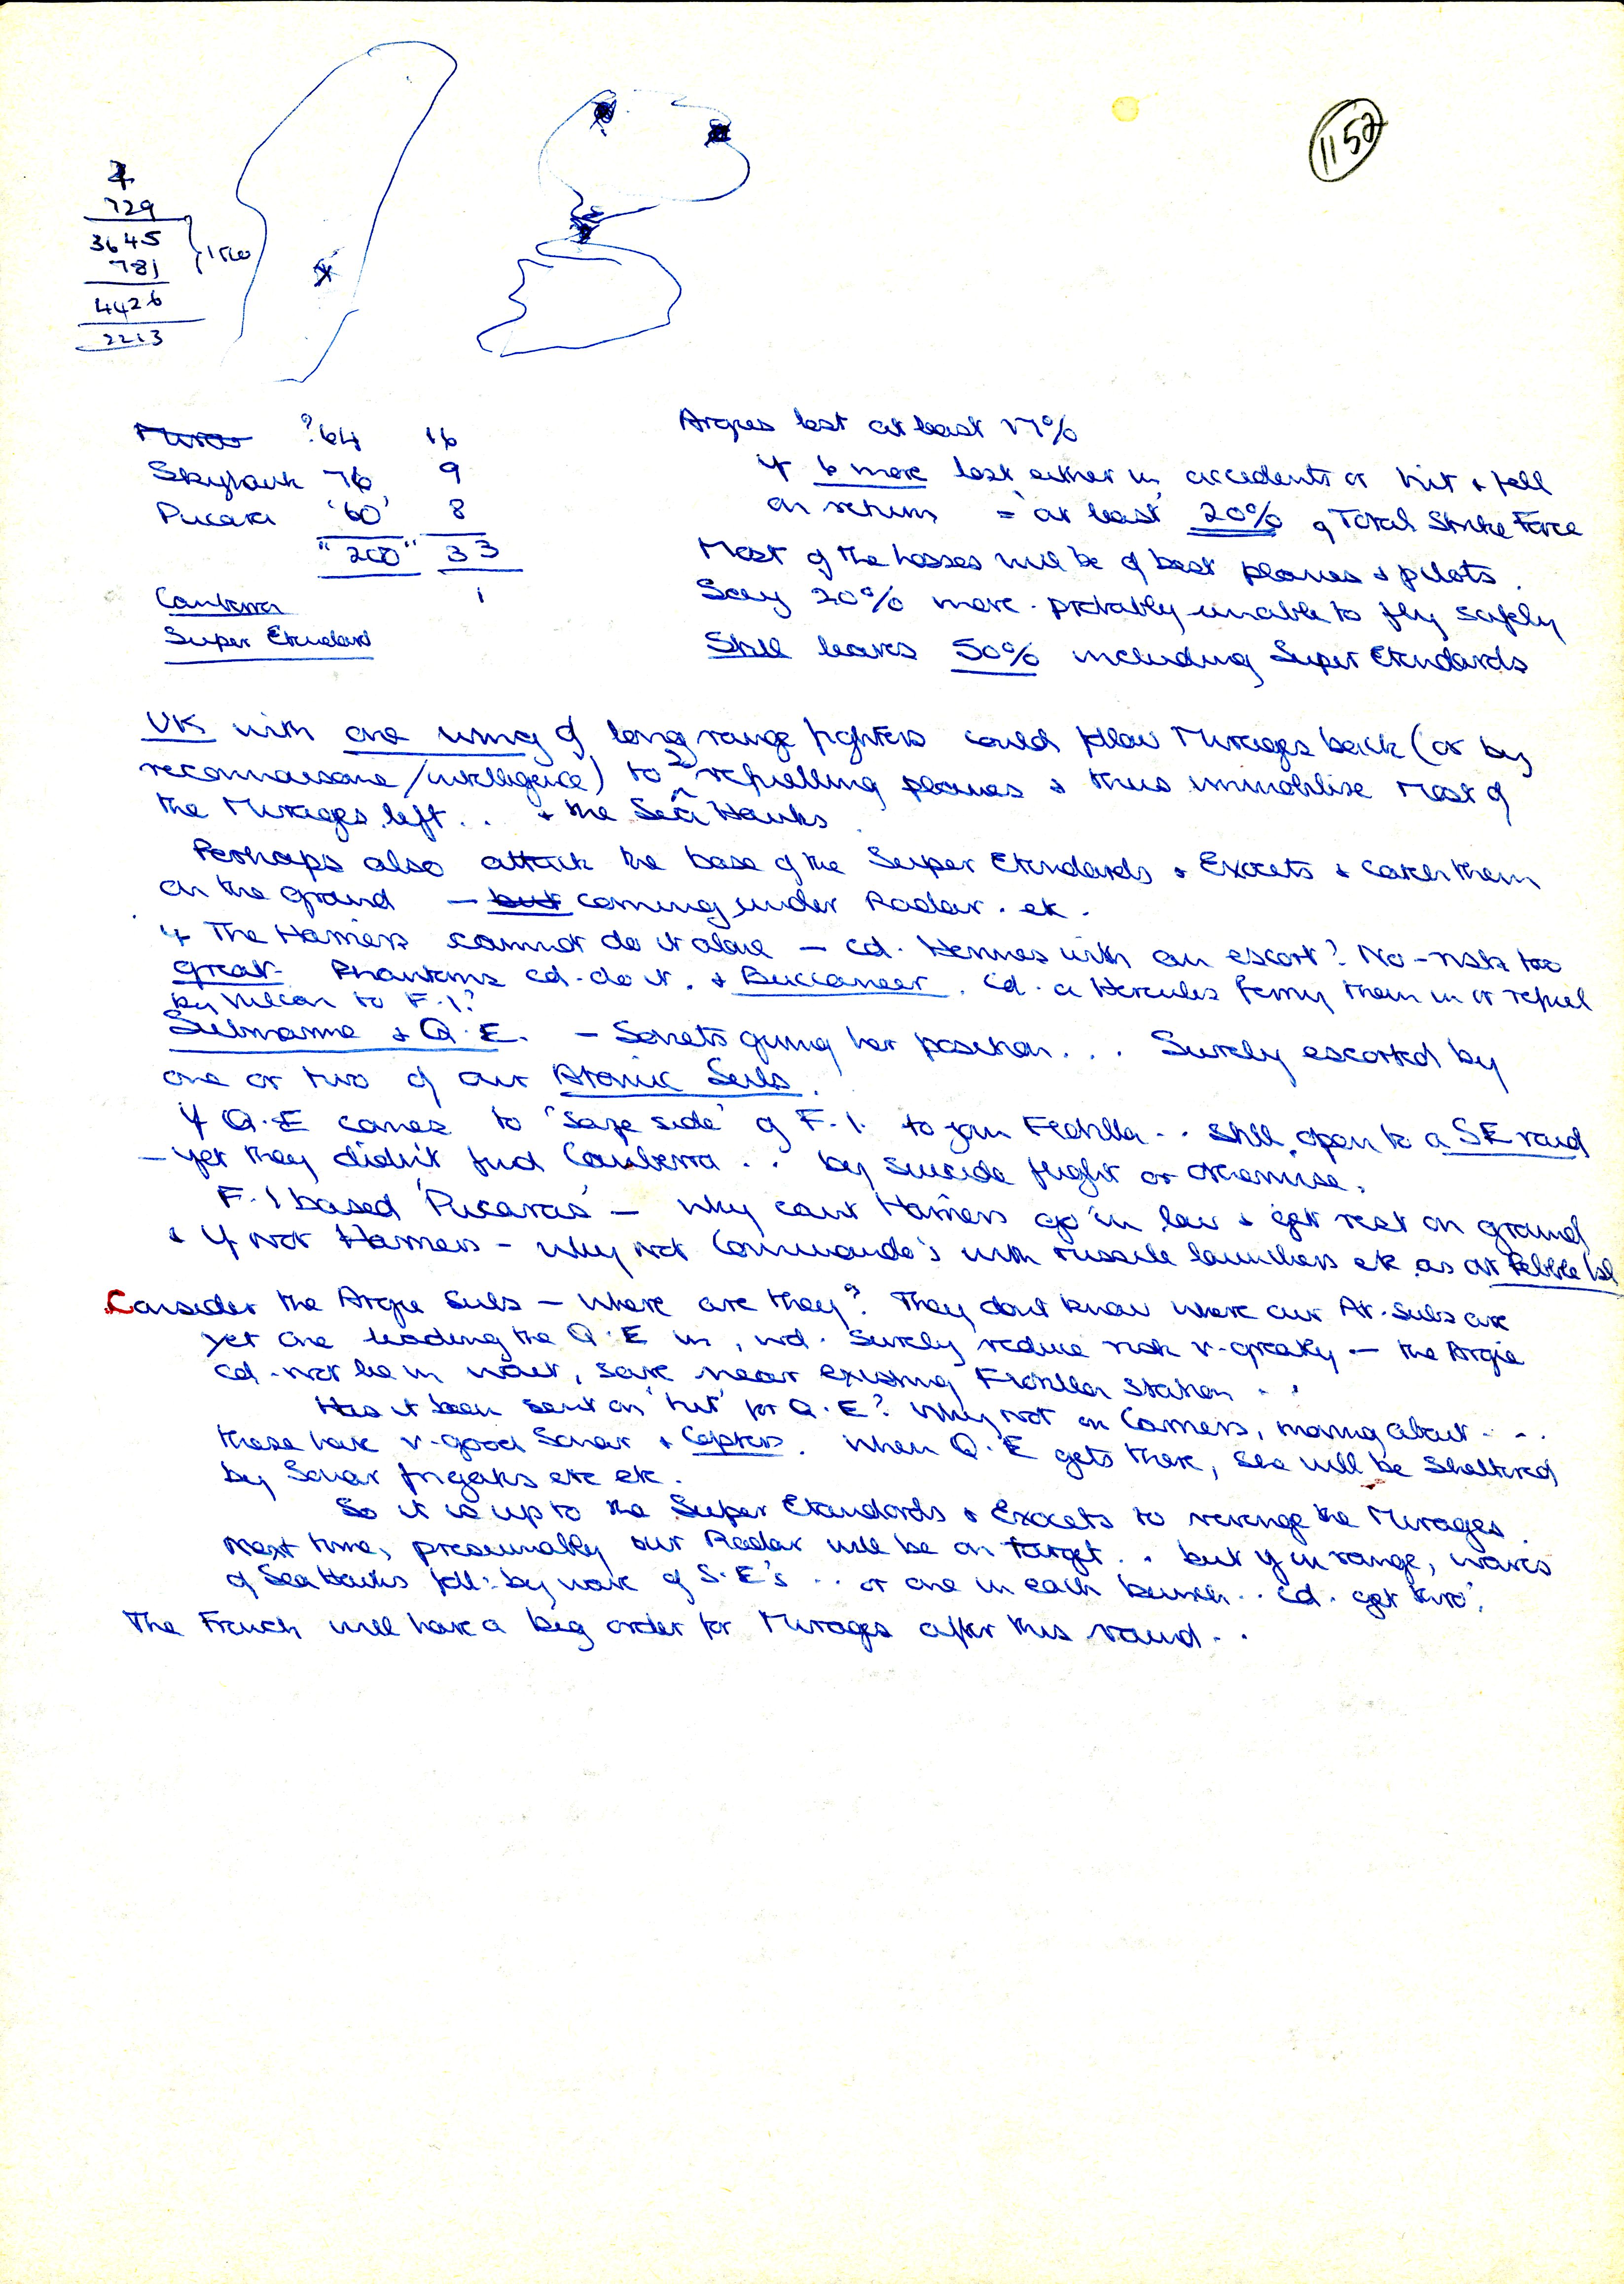 1152
729
3645
781
4426
2213
1500
?64 16
Skyhawk 76 9
Pucara '60' 8
"200" 33
Canberra 1
Super Etendard
Argies lost at least 17%
if 6 more lost either in accidents or hit & fell
on return = 'at least' 20% of Total Strike Force
Most of the losses will be of best planes & pilots.
Say 20% more probably unable to fly safely
Still leaves 50% including Super Etendards
UK with one wing of long range fighters could follow Mirages back (or by
reconnaissance/intelligence) to 2 refuelling planes & thus immobilise most of
the Mirages left .. & the Sea Hawks.
Perhaps also attack the base of the Super Etendards & Exocets & catch them
on the ground — but coming under Radar. etc.
If The Harriers cannot do it alone — cd. Hermes with an escort? No - risk too
great. Phantoms cd. do it. & Buccaneer. Cd. a Hercules ferry them in or refuel
by Vulcan to F.I?
Submarine & Q.E. — Soviets giving her position ... Surely escorted by
one or two of our Atomic Subs.
If Q.E comes to 'safe side' of F.I. to join Flotilla .. still open to a SE raid
— yet they didn't find Canberra .. by suicide flight or otherwise.
F.I based 'Pucaras' — why can't Harriers go in low & get rest on ground
& if not Harriers - why not Commando's with missile launchers etc as at Pebble Isl
Consider the Argie Subs — Where are they? They don't know where our At. Subs are
yet one leading the Q.E in, wd. surely reduce risk v. greatly — the Argie
cd. not be in wait, save near existing Flotilla station ..
Has it been sent on 'hit' for Q.E? Why not on Carriers, moving about ...
these have v. good Sonar & Copters. When Q.E gets there, she will be sheltered
by Sonar frigates etc etc.
So it is up to the Super Etendards & Exocets to revenge the Mirages.
Next time, presumably our Radar will be on target .. but if in range, waves
of Sea Hawks foll: by wave of S.E's .. or one in each bunch .. cd. get thro'.
The French will have a big order for Mirages after this round ..